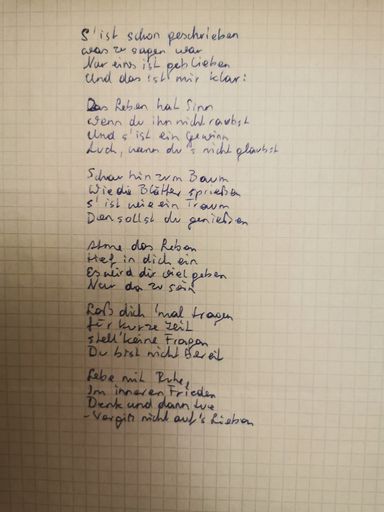 S'ist schon geschrieben
was zu sagen war
Nur eins ist geblieben
Und das ist mir klar:

Das Leben hat Sinn
wenn du ihn nicht raubst
Und s'ist ein Gewinn
Auch, wenn du's nicht glaubst

Schau hin zum Baum
Wie die Blätter sprießen
s'ist wie ein Traum
Den sollst du genießen

Atme das Leben
tief in dich ein
Es wird dir viel geben
Nur da zu sein

Laß dich 'mal tragen
für kurze Zeit
stell' keine Fragen
Du bist nicht Bereit

Lebe mit Ruhe,
Im inneren Frieden
Denk und dann tue
- Vergiß nicht auf's Lieben